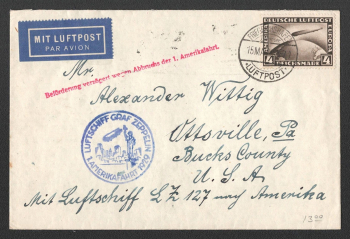 MIT LUFTPOST
PAR AVION
DEUTSCHE LUFTPOST
EUROPA AMERIKA
4 REICHSMARK 4
15.MAI
LUFTPOST
Mr.
Beförderung verzögert wegen Abbruchs der 1. Amerikafahrt.
Alexander Wittig
LUFTSCHIFF GRAF ZEPPELIN
1. AMERIKAFAHRT 1929
Ottsville, Pa
Bucks County
U.S.A
Mit Luftschiff LZ 127 nach Amerika
1399